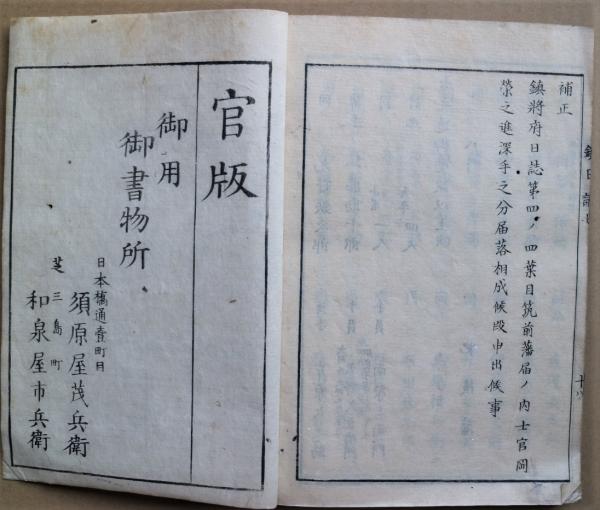 補正
鎮將府日誌第四ノ四葉目筑前藩届ノ内士官岡
榮之進深手之分届落相成候段申出候事
官版
御用
御書物所
日本橋通壹町目
須原屋茂兵衛
芝三島町
和泉屋市兵衛